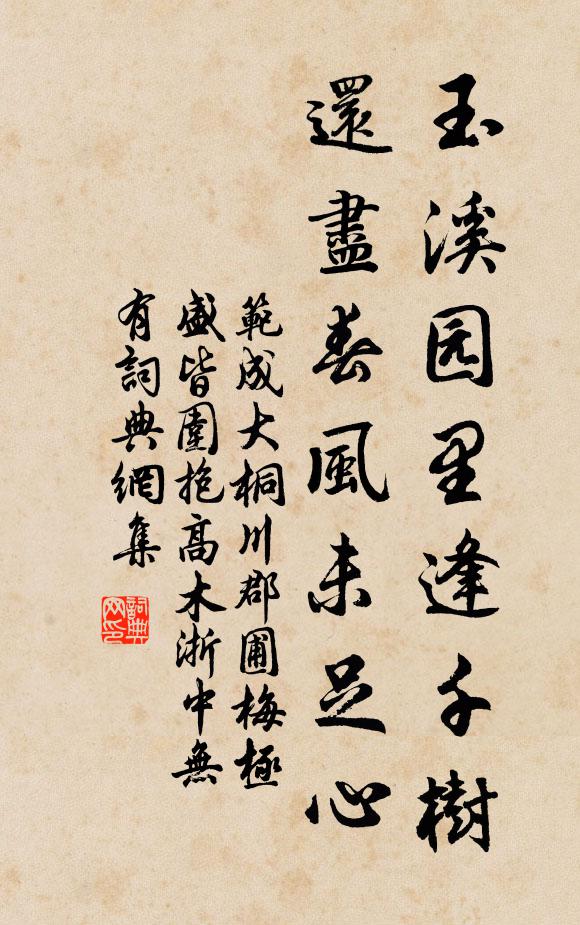 玉溪园里逢千樹
還盡春風未足心
範成大桐川郡圃梅極
盛皆圍抱高木浙中無
有詞典網集
詞典网印